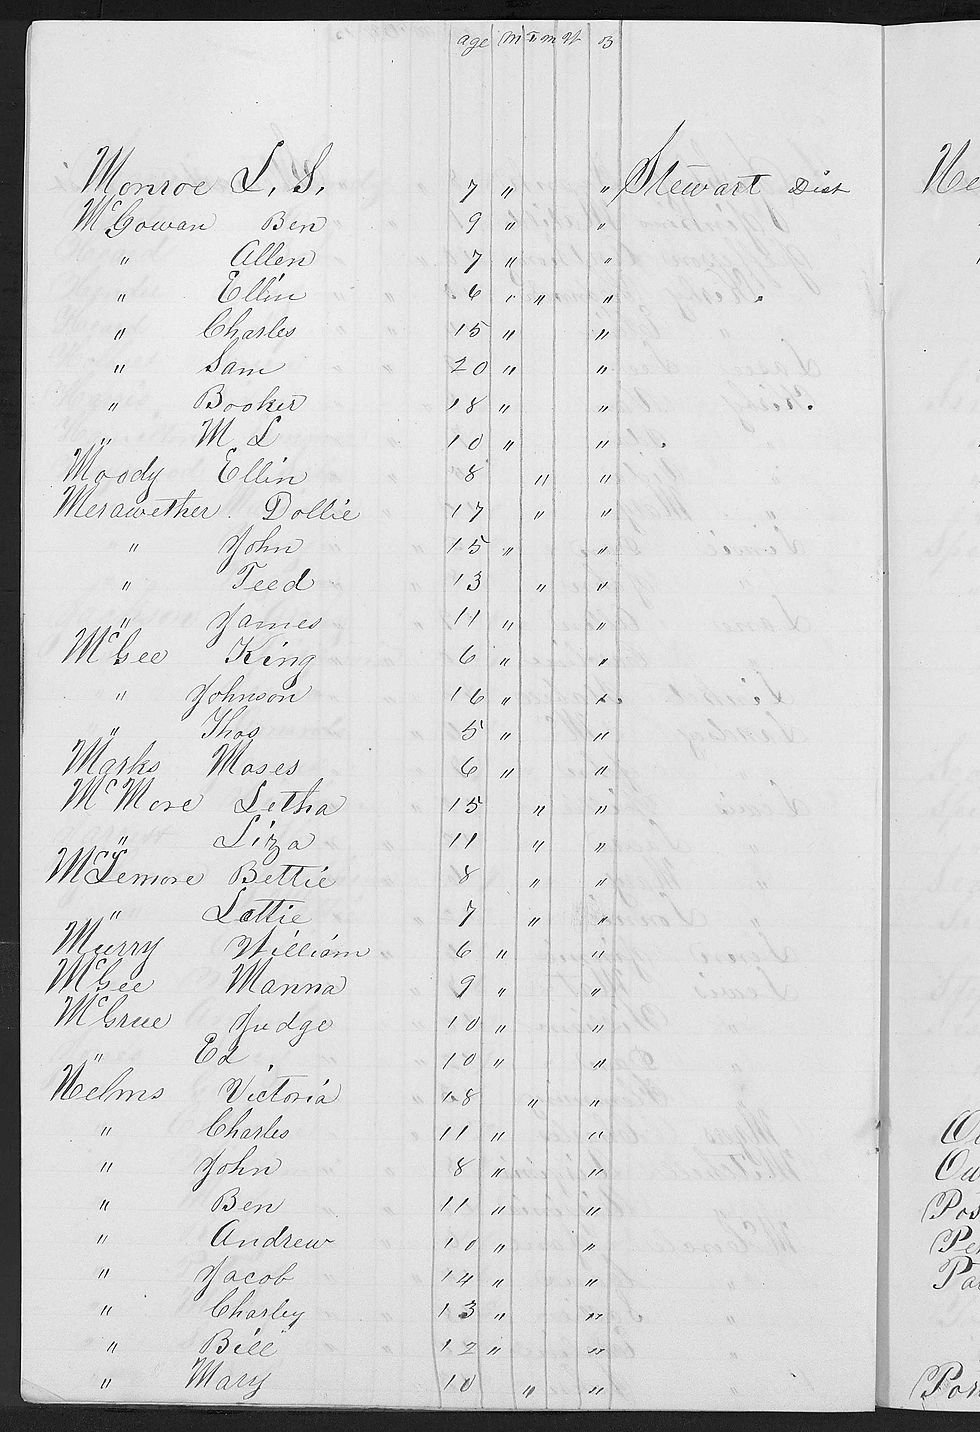 age M F M W B
Monroe L. S. 7 " " Stewart Dist
McGowan Ben 9 " "
" Allen 7 " "
" Ellin 6 " " "
" Charles 15 " "
" Sam 20 " "
" Booker 18 " "
" M L 10 " "
Moody Ellin 8 " "
Merawether Dollie 17 " "
" John 15 " "
" Teed 13 " "
" James 11 " "
McGee King 6 " "
" Johnson 16 " "
" Thos 5 " "
Marks Moses 6 " "
McMore Letha 15 " "
" Liza 11 " "
McLemore Bettie 8 " "
" Lottie 7 " "
Murry William 6 " "
McGee Manna 9 " "
McGrue Judge 10 " "
" Ed 10 " "
Nelms Victoria 18 " "
" Charles 11 " "
" John 8 " "
" Ben 11 " "
" Andrew 10 " "
" Jacob 14 " "
" Charley 13 " "
" Bill 12 " "
" Mary 10 " "